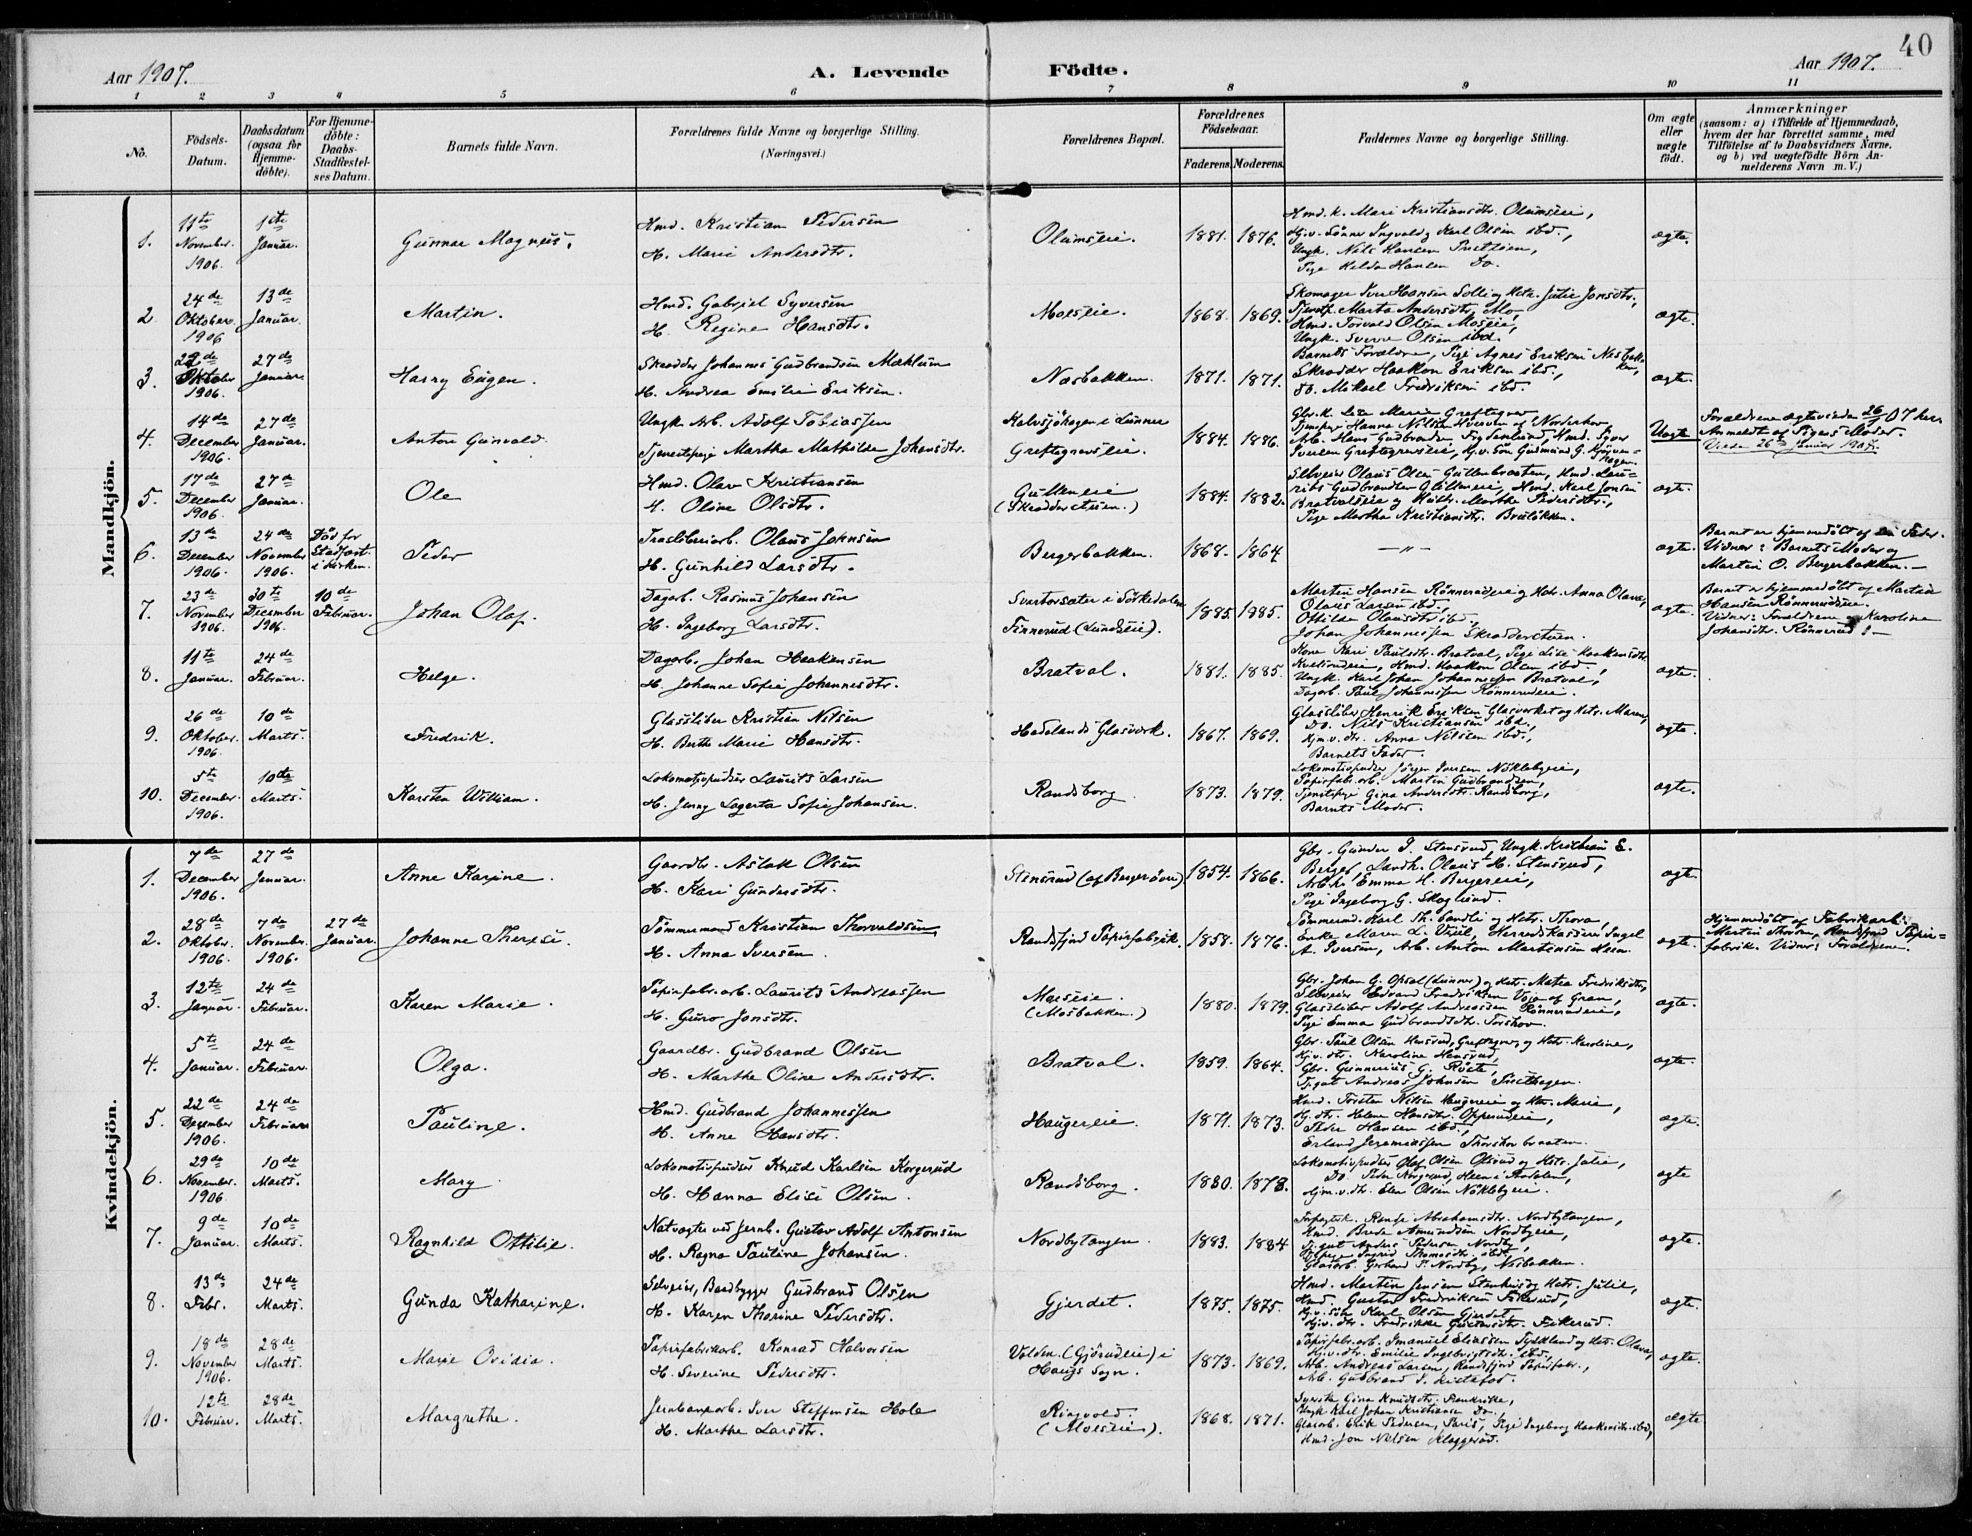 Aar 1907.
A. Levende
Födte.
Aar 1907.
40
1 2 3 4 5 6 7 8 9 10 11
No.
Födsels-
Datum.
Daabsdatum
(ogsaa for
Hjemme-
döbte).
For Hjemme-
döbte:
Daabs-
Stadfæstel-
ses Datum.
Barnets fulde Navn.
Forældrenes fulde Navne og borgerlige Stilling.
(Næringsvei.)
Forældrenes Bopæl.
Forældrenes
Födselsaar.
Faderens. Moderens.
Faddernes Navne og borgerlige Stilling.
Om ægte
eller
uægte
födt.
Anmærkninger
(saasom: a) i Tilfælde af Hjemmedaab,
hvem der har forrettet samme, med
Tilföielse af to Daabsvidners Navne,
og b) ved uægtefödte Börn An-
melderens Navn m.V.)
Mandkjön.
1.
11te
November.
1906.
1ste
Januar.
Gunnar Magnus.
Hmd. Kristian Pedersen
H. Marie Andersdtr.
Olumseie.
1881. 1876.
Hmd. k. Mari Kristiansdtr. Olumseie,
Gj.v. Sønner Ingvald og Karl Olsen ibd.,
Ungk. Nils Hansen
Pige Helda Hansen Do.
ægte.
2
24de
Oktober.
1906
13de
Januar.
Martin.
Hmd. Gabriel Syversen
H. Regine Hansdtr.
Moeseie.
1868. 1869.
Skomager Iver Hansen Sollie og Hstr. Julie Jonsdtr.,
Marta Andersdtr. Mo,
Hmd. Torvald Olsen Moseie,
Ungk. Sverre Olsen ibd.
ægte.
3.
22de
Oktober
1906.
27de
Januar.
Harry Eugen.
Skrædder Johannes Gudbrandsen Maklum
H. Andrea Emilie Eriksen.
Næsbakken.
1871. 1871.
Barnets Forældre, Pige Agnes Eriksen Næsbak-
ken,
Skrædder Haakon Eriksen ibd.,
Do. Mikael Fredriksen ibd.
ægte.
4.
14de
December
1906.
27de
Januar.
Anton Gunvald.
Ungk. Arb. Adolf Tobiassen
Tjenestepige Martha Mathilde Johansdtr.
Kalvsjöhagen i Lunner
Greftegrevseie.
1884. 1886.
Gbr.k. Lise Marie Greftegrev
Tjenstpige Hanna Nilsen Hverven af Norderhov,
Arb. Hans Gudbrandsen Hmd. Syver
Iversen Greftegrevseie, Gj.v. Søn Gudmund G.
Uægte
Forældrene ægteviede 26/ 07 her.
Anmeldt af Pigens Moder.
Viede 26de Januar 1907.
5.
17de
December
1906.
27de
Januar.
Ole
Hmd. Olav Kristiansen
H. Oline Olsdtr.
Gullenseie
(Skrædderstuen.)
1884. 1882.
Selveier Olaus Olsen Gullenbraaten, Hmd. Lau-
rits Gudbrandsen Gullenseie, Hmd. Karl Jonsen
Bratvalseie og Hstr. Marthe Pedersdtr.,
Pige Martha Kristiansdtr. Brulökken.
ægte.
6.
13de
December
1906.
24de
November
1906.
Död for
Stadfæst.
i Kirken.
Peder
Træsliberiarb. Olaus Johnsen
H. Gunhild Larsdtr.
Bergerbakken.
1868. 1864
— „ —
ægte.
Barnet er hjemmedöbt af sin Fader.
Vidner: Barnets Moder og
Martin O. Bergerbakken. —
7.
23de
November
1906.
30te
December
1906.
10de
Februar.
Johan Olaf.
Dagarb. Rasmus Johansen
H. Ingeborg Larsdtr.
Svartorsæter i Sörkedalen
Finnerud (Lundseie).
1885. 1985.
Martin Hansen Rönnerudseie og Hstr. Anna Olava,
Olaus Larsen ibd.,
Ottilde Olausdtr. ibd.,
Johan Johannessen Skrædderstuen.
ægte.
Barnet er hjemmedöbt af Martin
Hansen Rönnerudseie.
Vidner: Forældrene og Karoline
Johansdtr. Rönnerud. —
8.
11te
Januar.
24de
Februar.
Helge.
Dagarb. Johan Haakensen
H. Johanne Sofie Johannesdtr.
Bratval.
1881. 1885.
Kone Kari Paulsdtr. Bratval, Pige Lise Haakensdtr.
Hmd. Haakon Olsen ibd.,
Ungk. Karl Johan Johannessen Bratval,
Dagarb. Paul Johannessen Rönnerudseie.
ægte.
9.
26de
Oktober.
1906.
10de
Marts.
Fredrik.
Glassliber Kristian Nilsen
H. Berthe Marie Hansdtr.
Hadelands Glasværk.
1867. 1869.
Glassliber Henrik Eriksen Glasværket og Hstr. Maren,
Do. Nils Kristiansen ibd.,
Hjm.v. dtr. Anna Nilsen ibd.,
Barnets Fader.
ægte.
10.
5te
December.
1906.
10de
Marts.
Karsten William.
Lokomotivpudser Laurits Larsen
H. Jenny Lagerta Sofie Johansen.
Randsborg.
1873. 1879.
Lokomotivpudser Jörgen Iversen Nöklebyeie,
Papirfabr.arb. Martin Gudbrandsen,
Tjenestpige Gina Andersdtr. Randsborg,
Barnets Moder.
ægte.
Kvindekjön.
1.
7de
December
1906.
27de
Januar.
Anne Karine.
Gaardbr. Aslak Olsen
H. Kari Gundersdtr.
Stensrud (af Berger övre)
1854. 1866.
Gbr. Gunder I. Stensrud, Ungk. Kristian E.
Berger, Landh. Olaus H. Stensrud,
Arb.k. Emma H. Bergereie,
Pige Ingeborg G. Skoglund.
ægte.
2.
28de
Oktober.
1906.
7de
November.
1906.
27de
Januar.
Johanne Therese.
Tömmermand Kristian Thorvaldsen
H. Anna Iversen.
Randsfjord Papirfabrik.
1858. 1876.
Tömmermd. Karl Th. Sandli og Hstr. Thora,
Enke Maren L. Herredskasserer Ingel
A. Iversen, Arb. Anton Martinsen Heen.
ægte.
Hjemmedöbt af Fabrikarb.
Martin Randsfjord Papir-
fabrik. Vidner: Forældrene.
3.
12te
Januar.
24de
Februar.
Karen Marie.
Papirfabr.arb. Laurits Andreassen
H. Guro Jonsdtr.
Moeseie.
(Mosbakken.)
1880. 1879.
Gbr. Johan G. Opsal (Lunner) og Hstr. Matea Fredriksdtr.,
Selveier Edvard Fredriksen Vöien af Gran,
Glassliber Adolf Andreassen Rönnerudseie,
Pige Emma Gudbrandsdtr. Torshov.
ægte.
4.
5te
Januar.
24de
Februar.
Olga.
Gaardbr. Gudbrand Olsen
H. Marthe Oline Andersdtr.
Bratval.
1859. 1864.
Gbr. Paul Olsen Hensrud, Greftegrev, og Hstr. Karoline,
Gj.v. dtr. Karoline Hensrud,
Gbr. Gunnerius G. Röste,
Andreas Johnsen
ægte.
5.
22de
December
1906.
24de
Februar
Pauline.
Hmd. Gudbrand Johannessen
H. Anne Hansdtr.
Haugereie.
1871. 1873.
Hmd. Torsten Nilsen Haugereie og Hstr. Marie,
Gj.dtr. Helene Hansdtr. Opperudeie,
Peder Hansen ibd.,
Erland Jeremiassen Thorshovbraaten.
ægte.
6.
29de
November.
1906.
10de
Marts.
Mary
Lokomotivpudser Knud Karlsen Korgerud
H. Hanna Elise Olsen.
Randsborg.
1880. 1878.
Lokomotivpudser Olaf Olsen Olsrud og Hstr. Julie,
Do. Peder Heen i Aadalen,
Hjm.v.dtr. Elen Olsen Nöklebyeie.
ægte
7.
9de
Januar.
10de
Marts.
Ragnhild Ottilie.
Natvægter ved Jernb. Gustav Adolf Antonsen
H. Ragna Pauline Johansen.
Nordbytangen.
1883. 1884
Randi Abrahamsdtr. Nordbytangen,
Hmd. Brede Amundsen Nordbyeie,
Anders Pedersen Nordby,
Ingrid Thomasdtr. ibd.,
Gerhard P. Nordby, Næsbakken.
ægte.
8.
13de
Febr.
24de
Marts.
Gunda Katharine.
Selveier, Baadbygger Gudbrand Olsen
H. Karen Thorine Pedersdtr.
Gjerdet.
1875. 1875.
Hmd. Martin Jensen og Hstr. Julie,
Hmd. Gustav Fredriksen Fikerud,
Gj.v. sön Karl Olsen Gjerdet,
Gj.v. dtr. Fredrikke Gustavsdtr. Fikerud.
ægte.
9.
18de
November
1906.
28de
Marts.
Marie Ovidia.
Papirfabrikarb. Konrad Halvorsen
H. Severine Pedersdtr.
Volden (Gjörudeie) i
Haugs Sogn.
1873. 1869.
Papirfabr.arb. Imanuel Eliassen Tyskland og Hstr. Olava,
Gj.v. dtr. Emilie Ingebrigtsdtr. ibd.,
Arb. Andreas Larsen, Randsfjord Papirfabr.,
Arb. Gudbrand
ægte.
10.
12te
Februar.
28de
Marts.
Margrethe.
Jernbanearb. Iver Steffensen Hole
H. Marthe Larsdtr.
Ringvold.
(Moeseie).
1868. 1871.
Gina Knudsdtr. Frankrike,
Ungk. Karl Johan Kristiansen Do.,
Glasarb. Erik Pedersen, Paris, Pige Ingeborg Haakensdtr. ibd,
Hmd. Jon Nilsen Klæggerud.
ægte